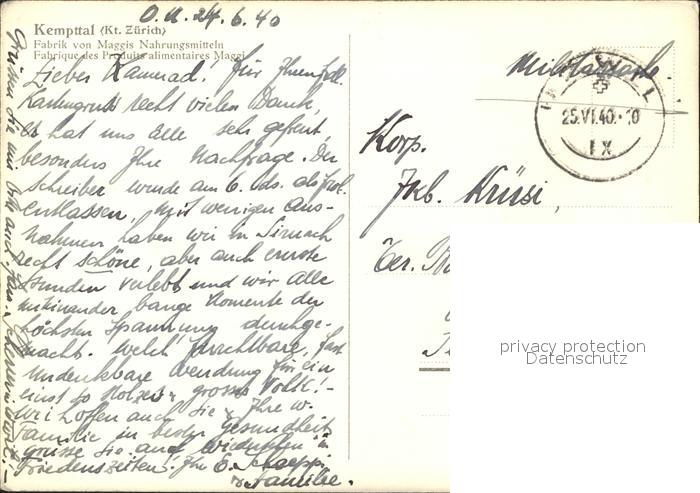 O.U. 24.6.40
Kempttal (Kt. Zürich)
Fabrik von Maggis Nahrungsmitteln
Fabrique des Produits alimentaires Maggi
Lieber Kamerad! Für Ihren frdl.
Kartengruss recht vielen Dank,
es hat uns alle sehr gefreut,
besonders Ihre Nachfrage. Der
Schreiber wurde am 6. ds. als
entlassen, mit wenigen Aus-
nahmen haben wir in Sirnach
recht schöne, aber auch ernste
Stunden verlebt und wir alle
miteinander bange Momente der
höchsten Spannung durchge-
macht. Welch furchtbare, fast
undenkbare Wendung für ein
einst so stolzes & grosses Volk! -
Wir hoffen auch Sie & Ihre w.
Familie in bester Gesundheit
grüsse Sie auf Wiedersehen in
Friedenszeiten! Ihr E.
& Familie.
Grüssen Sie mir bitte auch
Militärsache.
25.VI.40.-10
IX
Korp.
Jkb. Krüsi,
privacy protection
Datenschutz